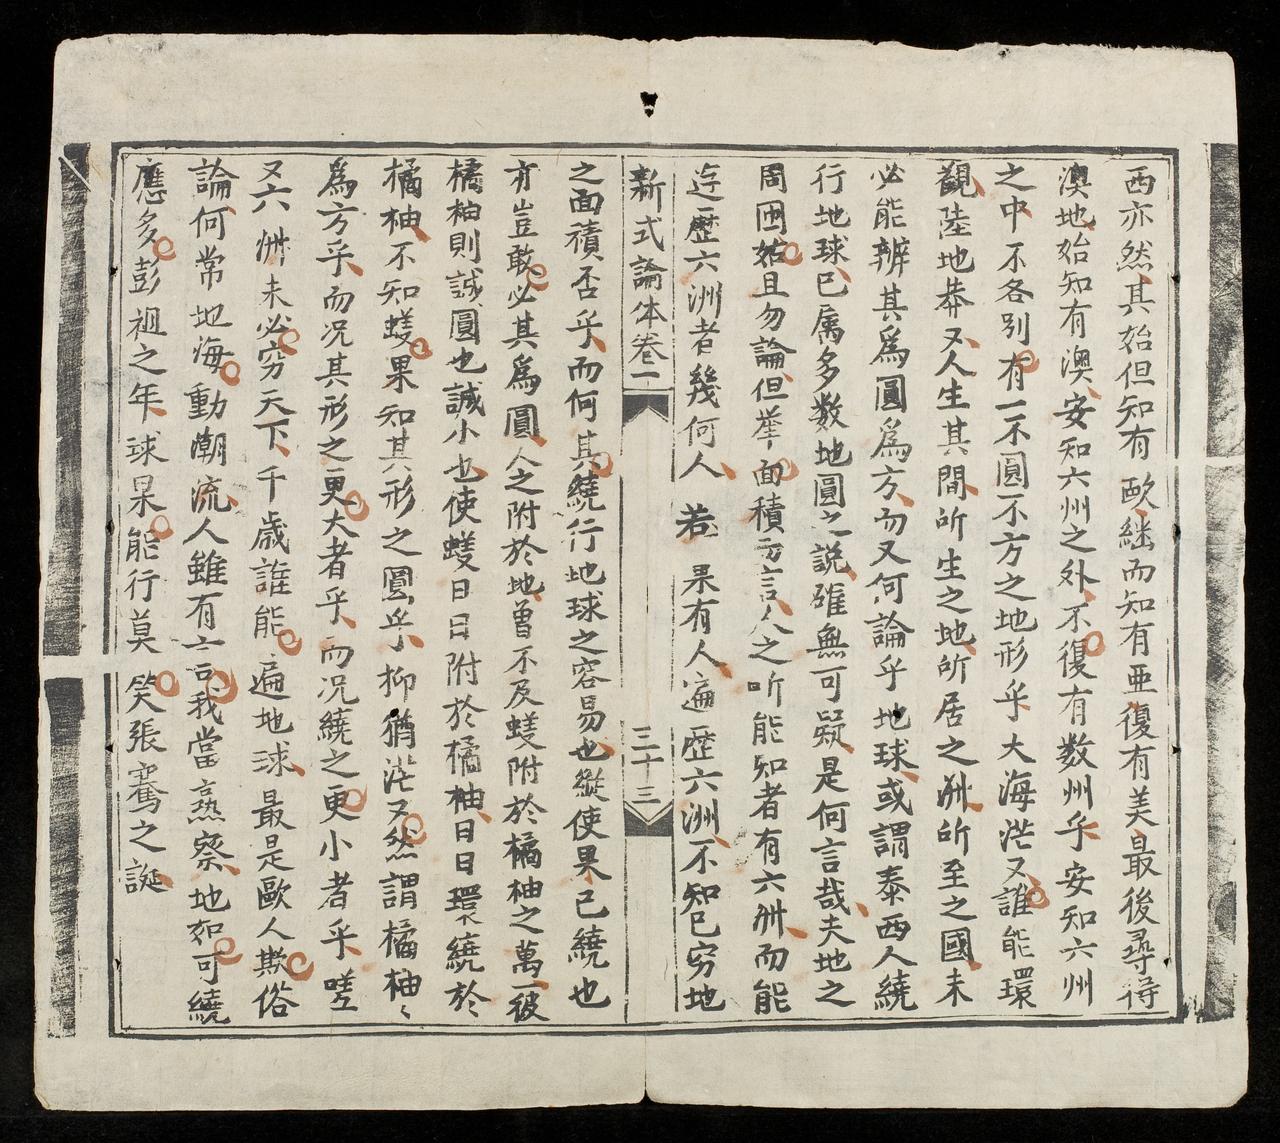 西亦然其始但知有歐継而知有亜復有美最後尋得
澳地始知有澳安知六州之外不復有数州乎安知六州
之中不各別有一不圓不方之地形乎大海茫又誰能環
觀陸地莽又人生其間所生之地所居之洲所至之國未
必能辨其為圓為方而又何論乎地球或謂泰西人繞
行地球已属多数地圓之說確無可疑是何言哉夫地之
周囲始且勿論但举面積而言人之所能知者有六州而能
逰歷六洲者幾何人若果有人遍歴六洲不知已穷地
新式論体卷一
三十三
之面積否乎而何其繞行地球之容易也縱使果已繞也
方豈敢必其為圓人之附於地曽不及蟻附於橘柚之萬一彼
橘柚則誠圓也誠小也使蟻日日附於橘柚日日環繞於
橘柚不知蟻果知其形之圓乎抑猶茫又然謂橘柚〻
為方乎而况其形之更大者乎而况繞之更小者乎嗟
又六州未必穷天下千歳誰能遍地球最是歐人欺俗
論何常地海動潮流人雖有言我當高察地如可繞
應多彭祖之年球果能行莫笑張騫之誕